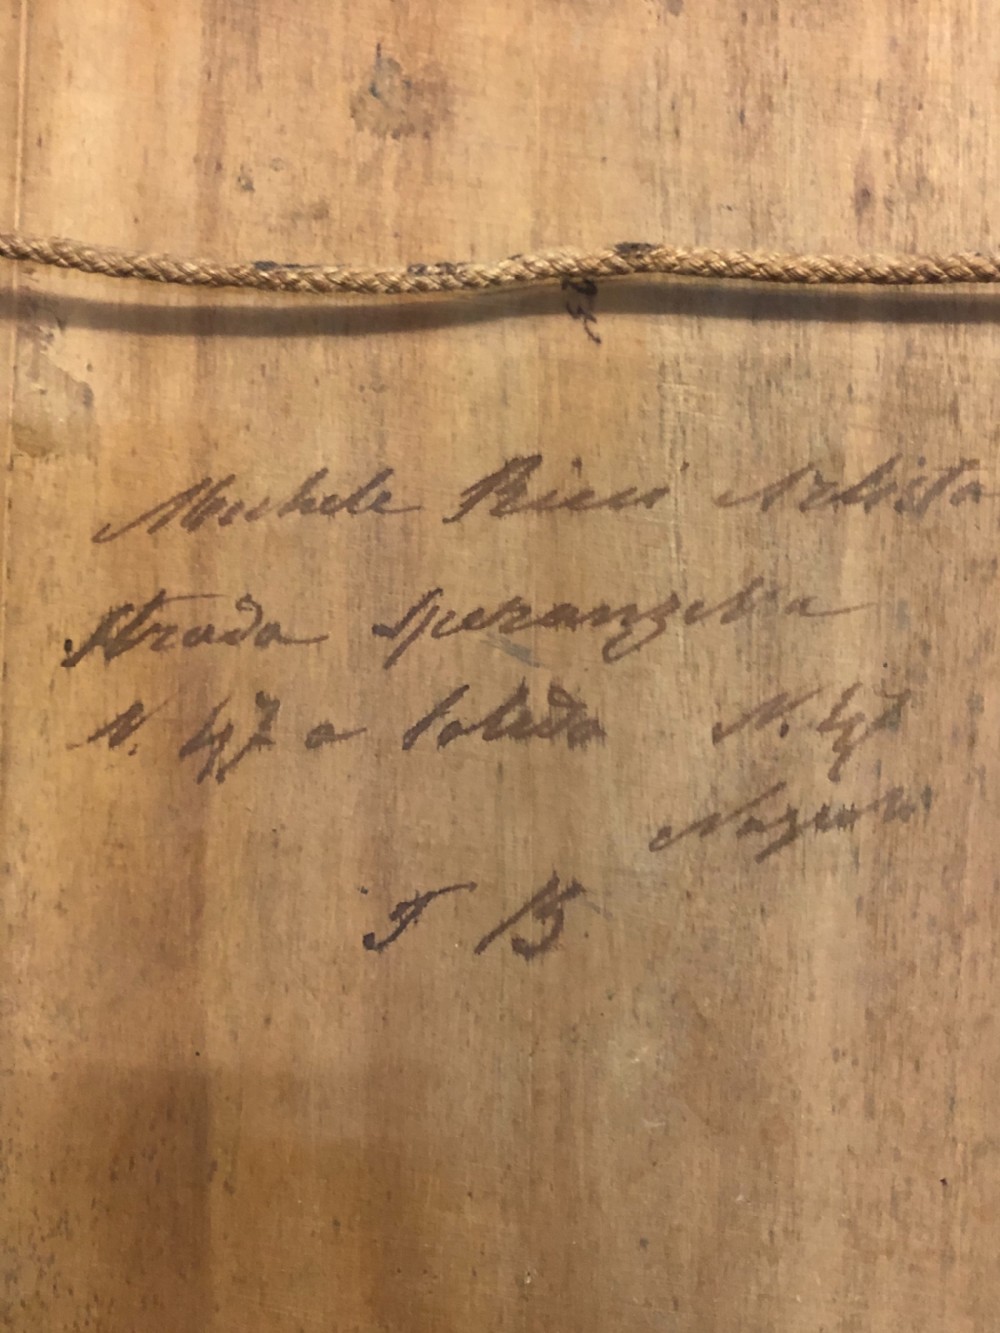 Michele Ricci Artista
Strada Speranzella
N. 47 a Toledo N. 47
Napoli
F B